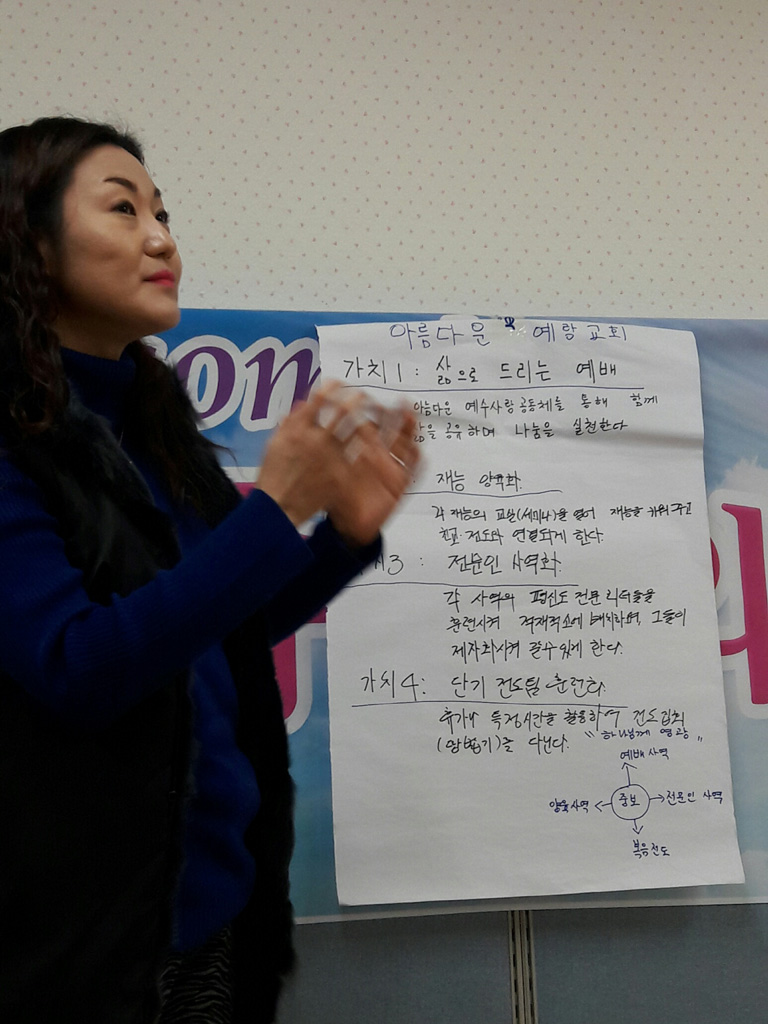 아름다운 예랑교회
가치 1 : 삶으로 드리는 예배
아름다운 예수사랑 공동체를 통해 함께
삶을 공유하며 나눔을 실천한다
재능 양육화
각 재능의 교실(세미나)을 열어 재능을 키워주고
전도와 연결되게 한다.
3 : 전문인 사역화
각 사역의 평신도 전문 리더들을
훈련시켜 적재적소에 배치하며, 그들이
제자화시켜 갈 수 있게 한다.
가치 4 : 단기 전도팀 훈련화
휴가나 특정시간을 활용하여 전도집회
를 다닌다. "하나님께 영광"
예배 사역
양육사역
중보
전문인 사역
복음전도
om